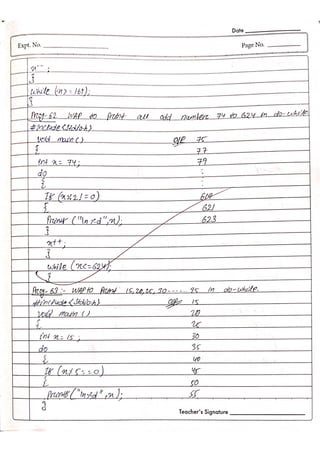 Date
Expt. No.
Page No.
x--;
}
while (n>=161);
}
Prog-62 WAP to Print all odd numbers 74 to 624 in do-while
#include<stdio.h>
void main() O/P 75
{ 77
int x=74; 79
do
{
If (x%2!=0) 619
{ 621
Printf ("\n%d",x); 623
}
x++;
}
while (x<=624);
}
Prog-63:- WAP to Print 15,20,25,30...... 95 in do-while.
#include<stdio.h> O/P 15
void main() 20
{ 25
int x=15; 30
do 35
{ 40
If (x%5==0) 45
{ 50
Printf("\n%d",x); 55
}
Teacher's Signature